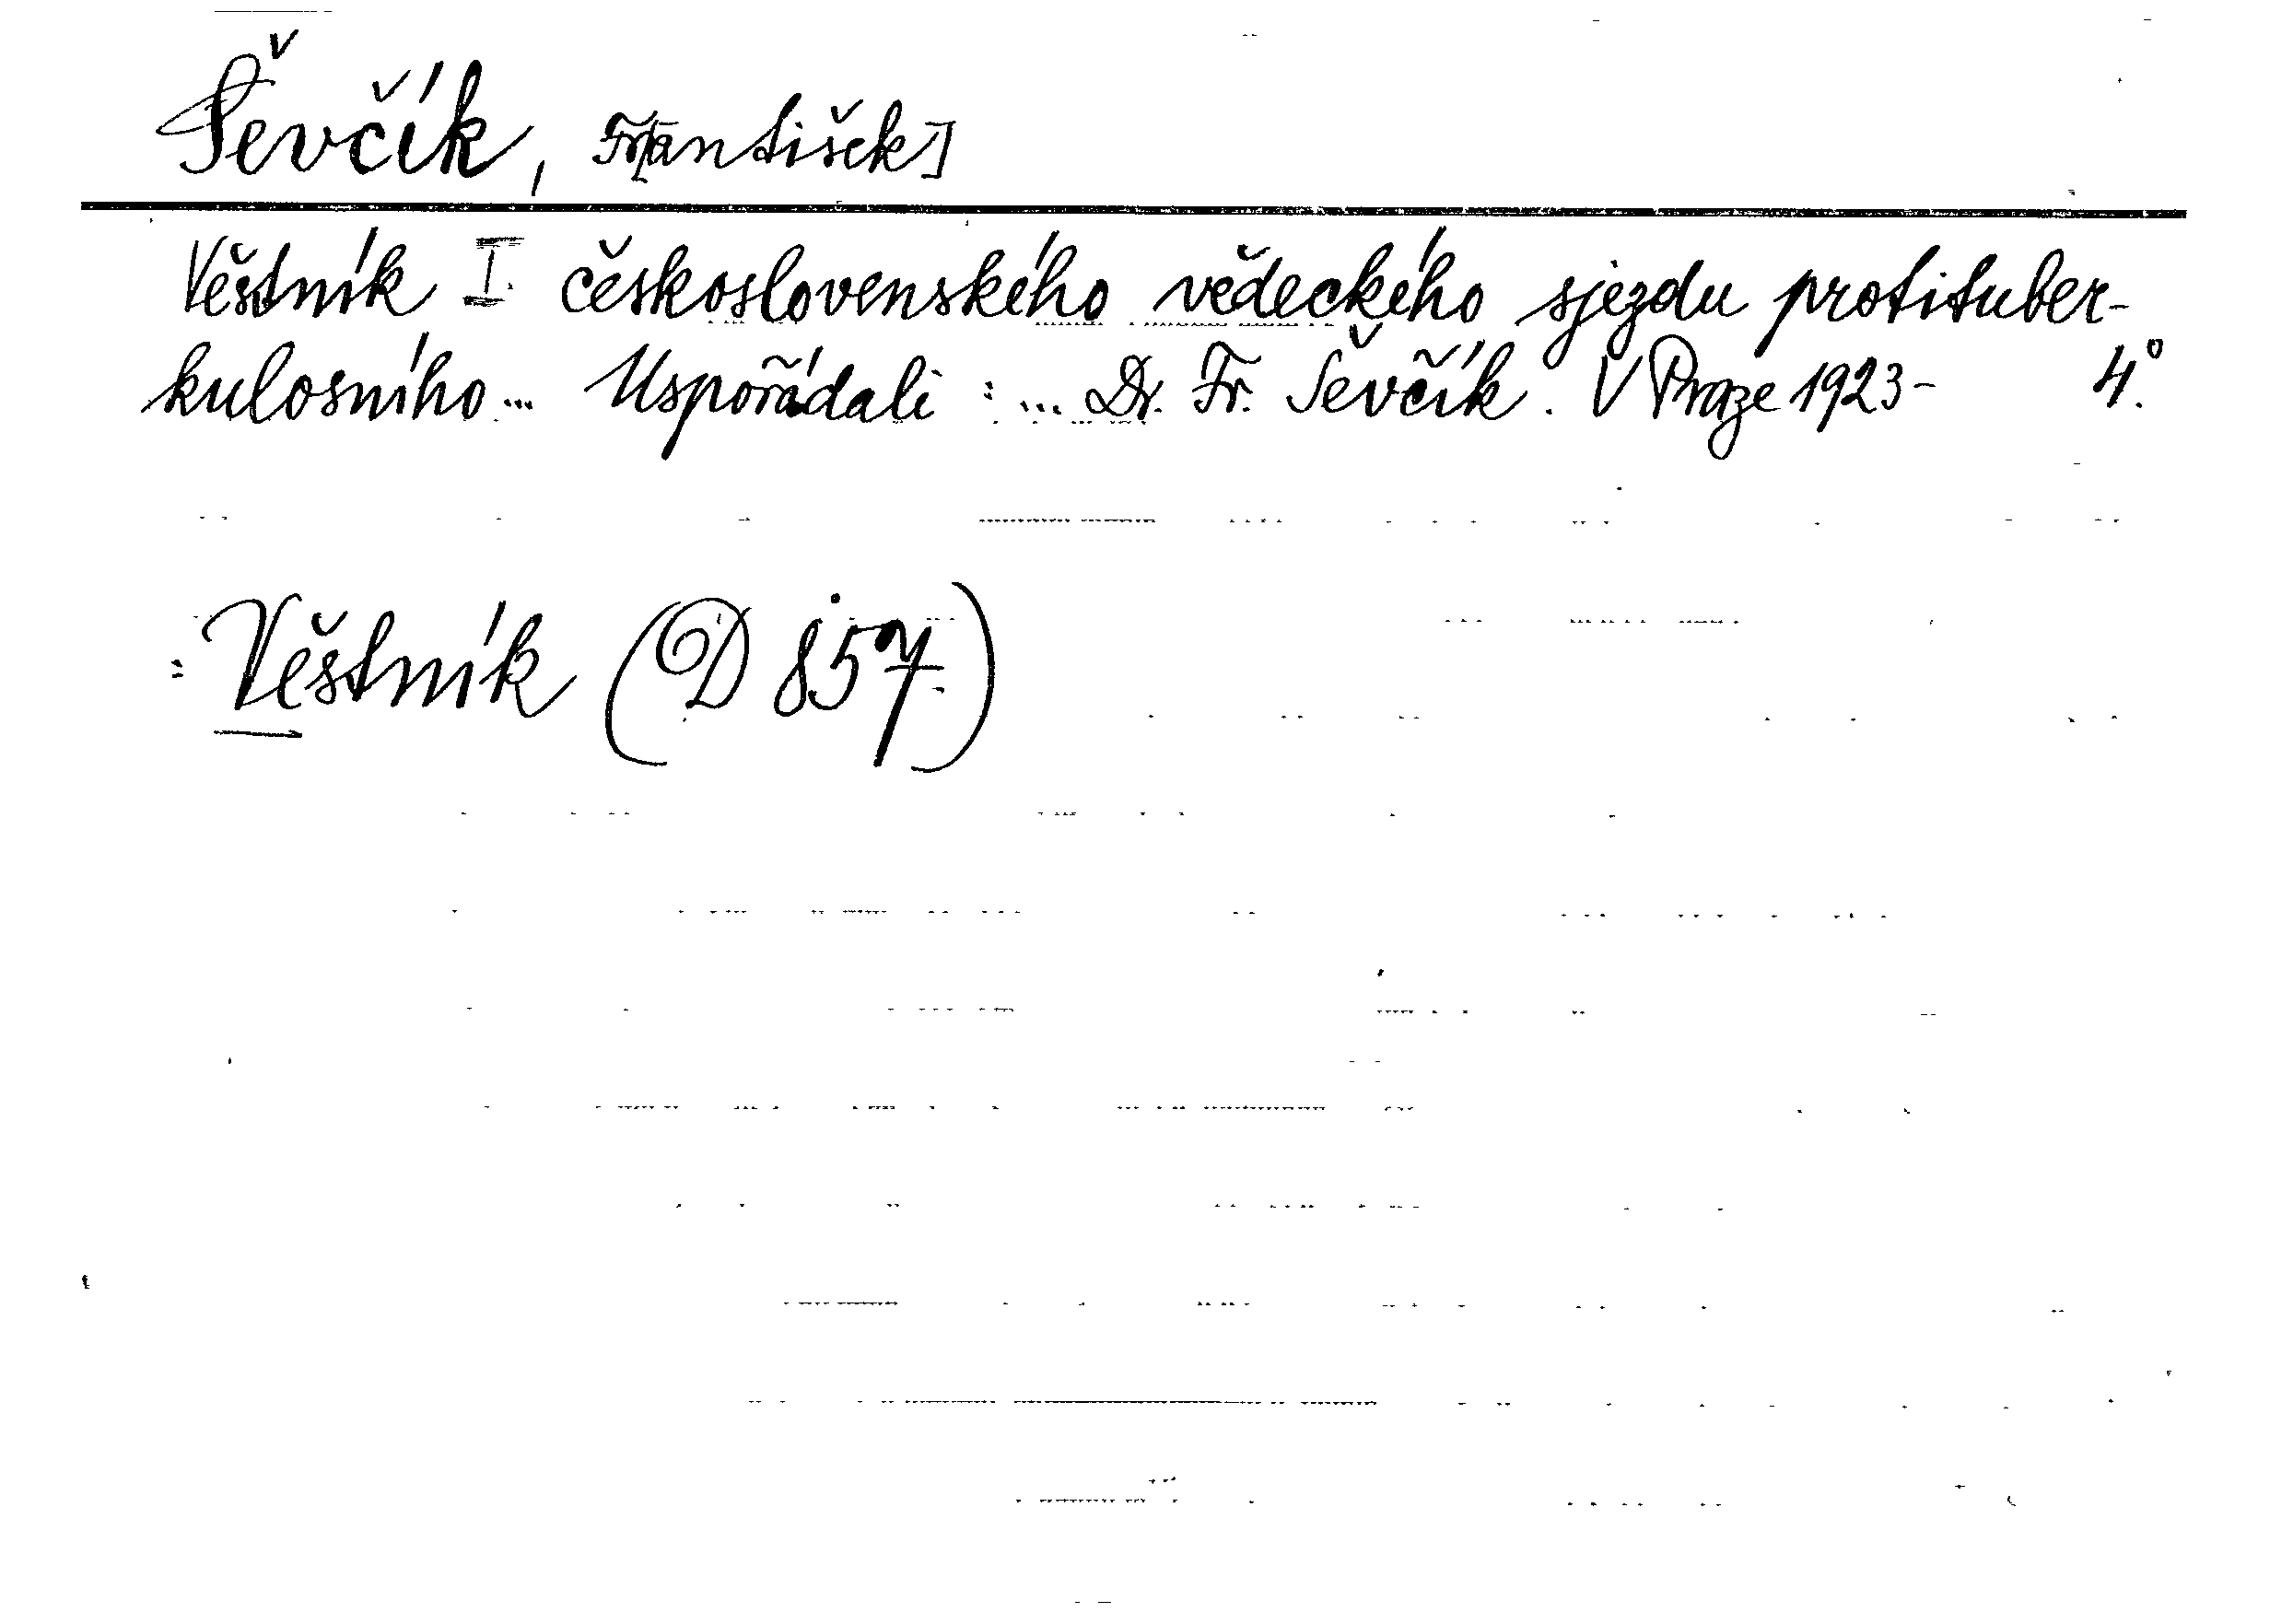 Ševčík, Fr[antišek]
Věstník I. československého vědeckého sjezdu protituber-
kulosního ... Uspořádali : ... Dr. Fr. Ševčík. V Praze 1923- 4.°
= Věstník (D 857.)